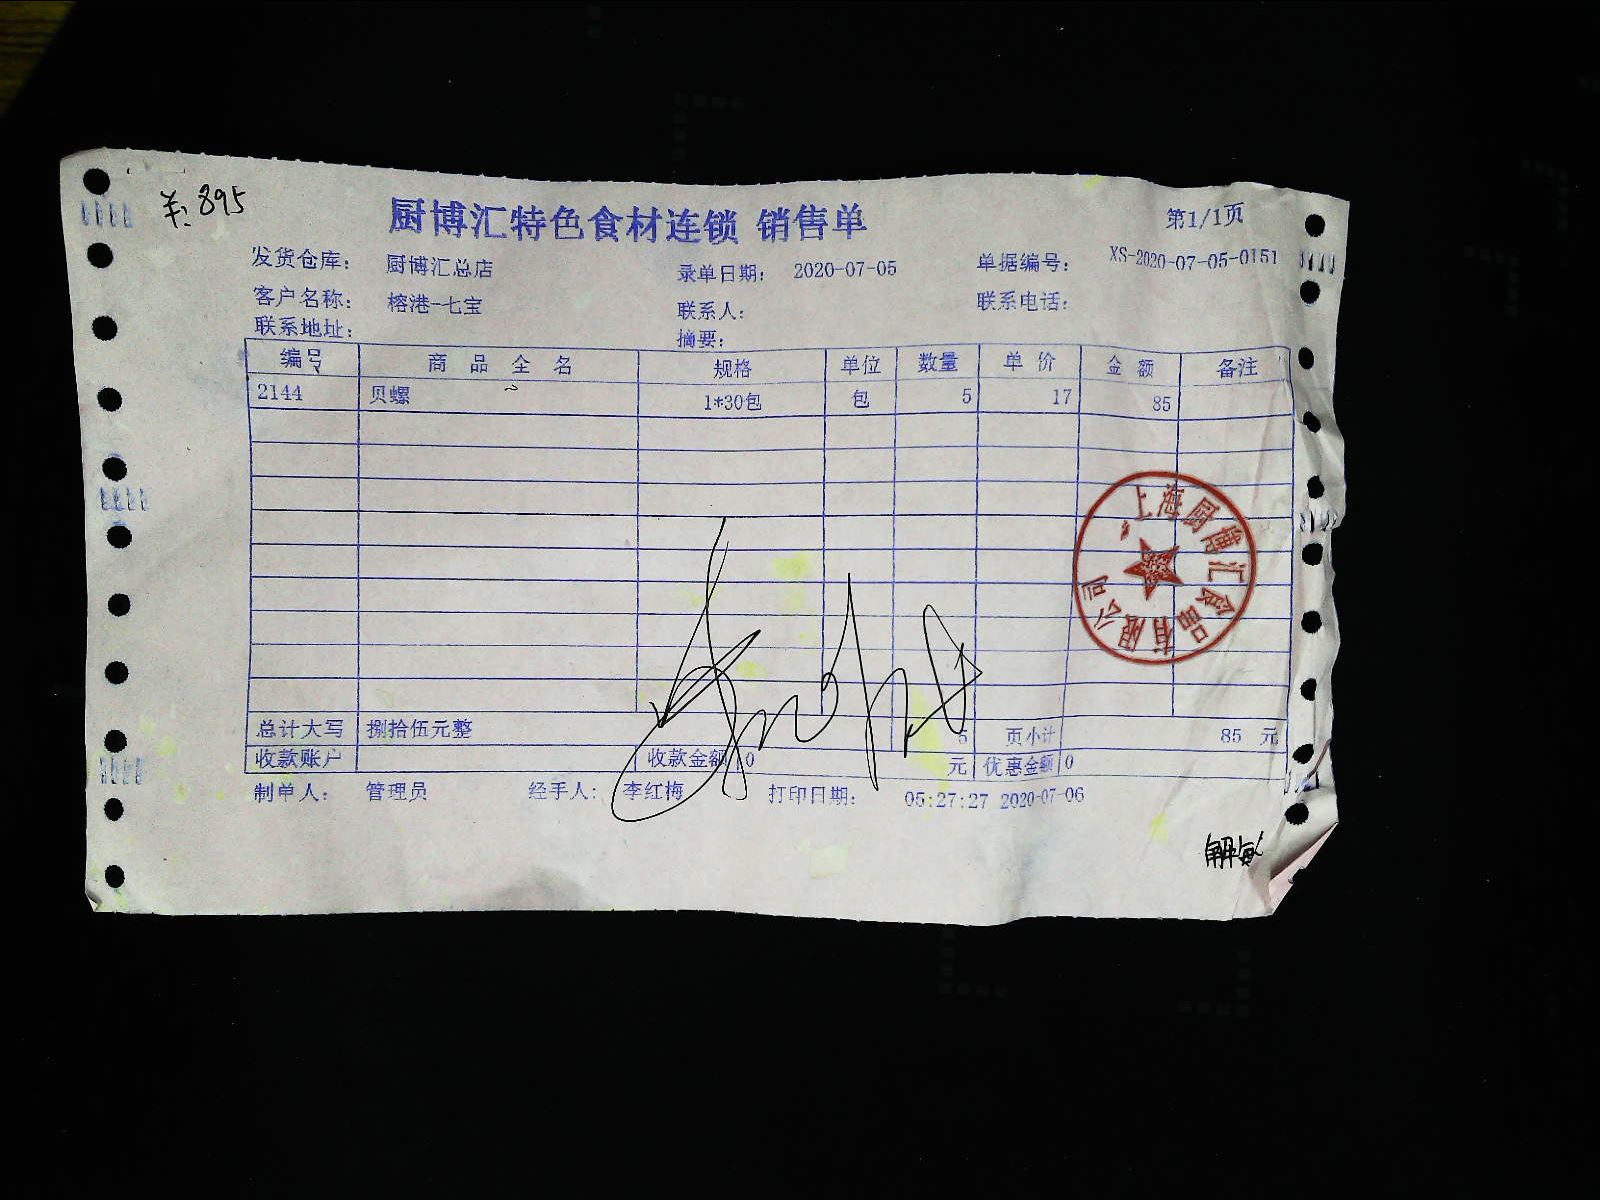 ¥:895
厨博汇特色食材连锁 销售单
第1/1页
发货仓库: 厨博汇总店 录单日期: 2020-07-05 单据编号: XS-2020-07-05-0151
客户名称: 榕港-七宝 联系人: 联系电话:
联系地址: 摘要:
编号 商品全名 规格 单位 数量 单价 金额 备注
2144 贝螺 1*30包 包 5 17 85
上海厨博汇食品有限公司
总计大写 捌拾伍元整 5 页小计 85 元
收款账户 收款金额 0 元 优惠金额 0
制单人: 管理员 经手人: 李红梅 打印日期: 05:27:27 2020-07-06